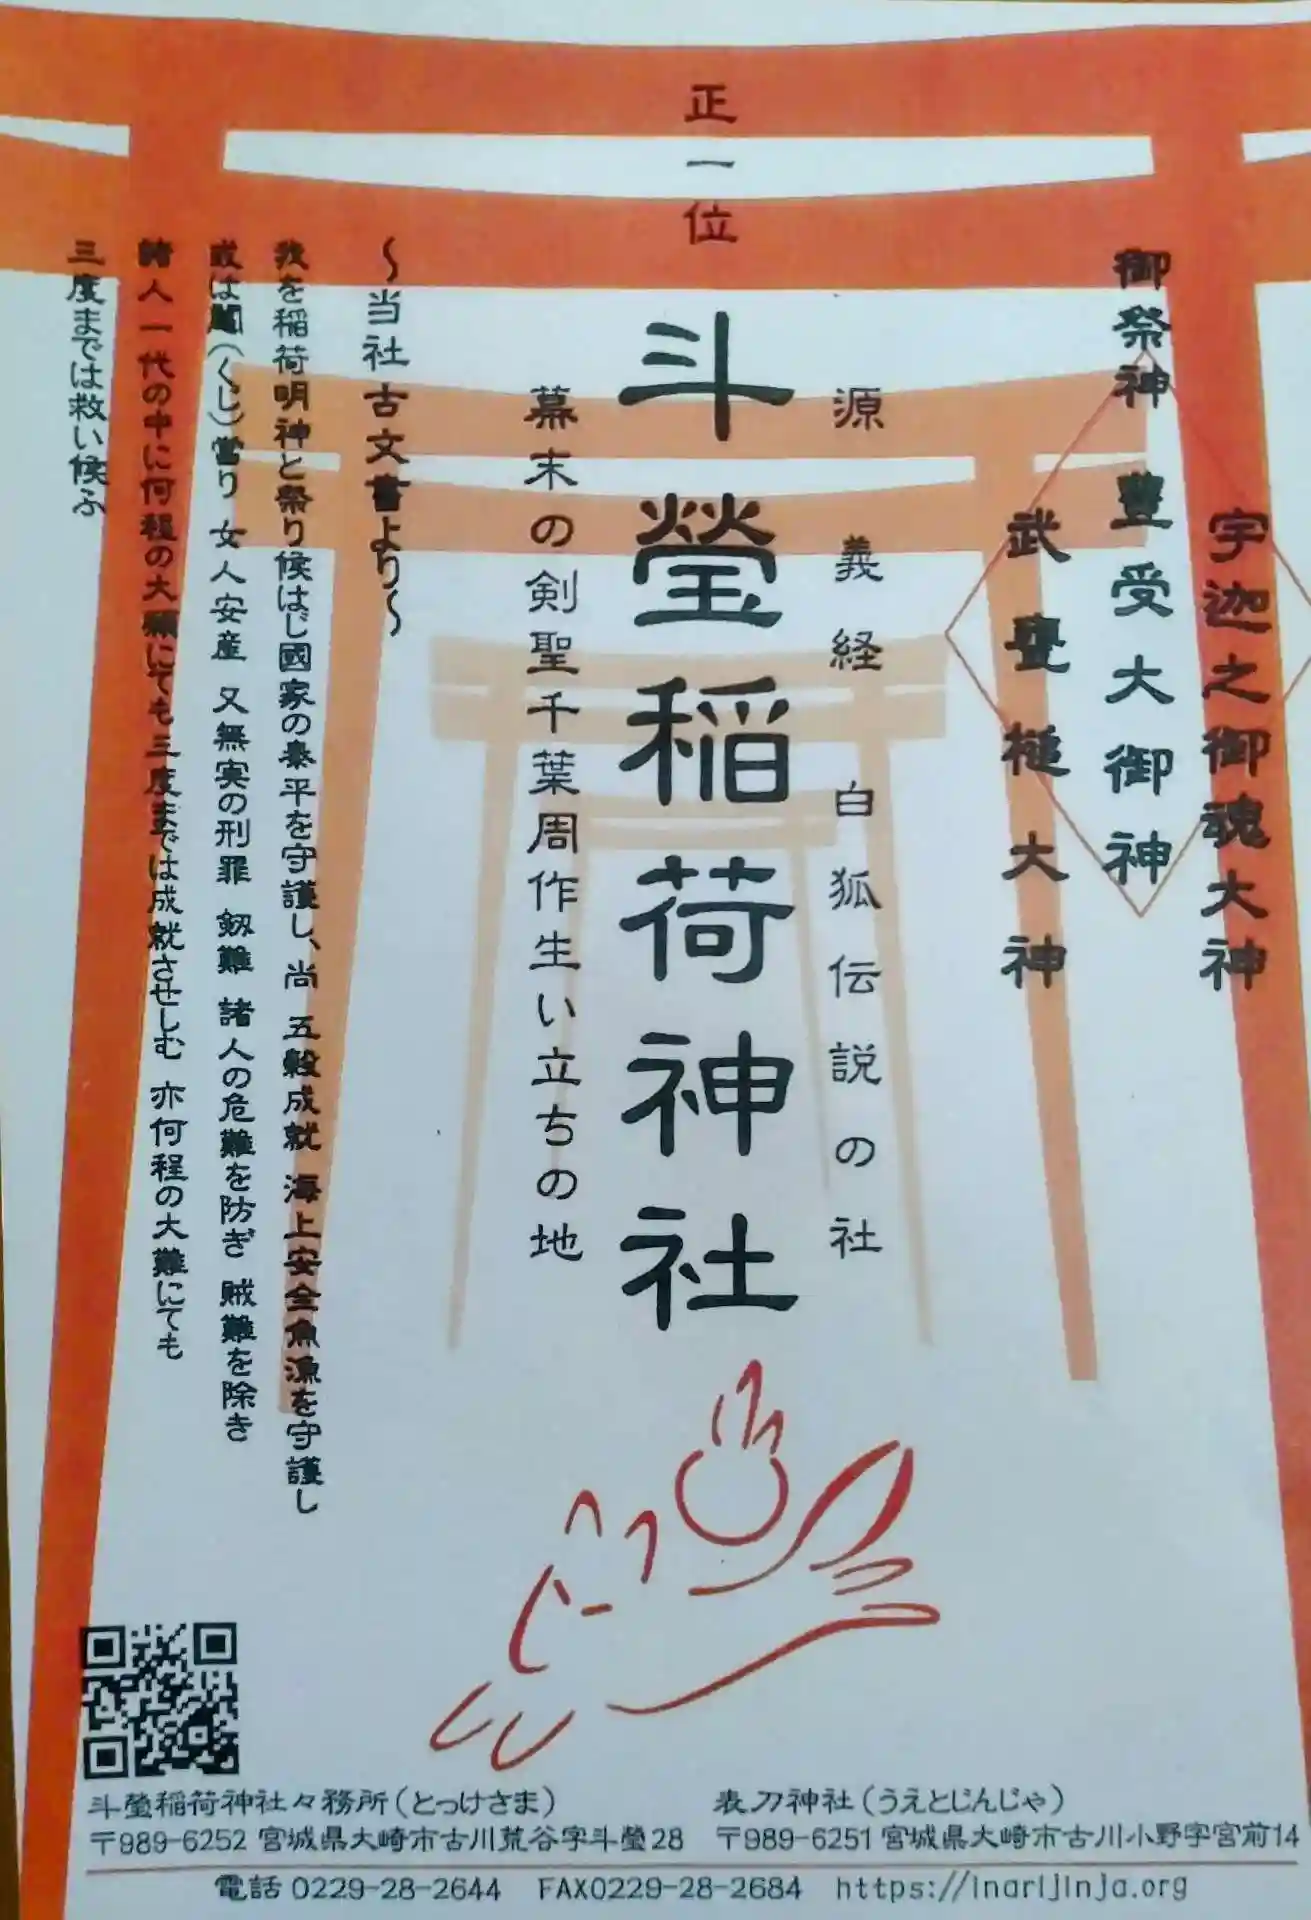 正一位
宇迦之御魂大神
御祭神 豊受大御神
武甕槌大神
源義経 白狐伝説の社
斗瑩稲荷神社
幕末の剣聖千葉周作生い立ちの地
~当社古文書より~
我を稲荷明神と祭り候はじ國家の泰平を守護し、尚 五穀成就 海上安全魚漁を守護し
或は鬮(くじ)當り 女人安産 又無実の刑罪 釼難 諸人の危難を防ぎ 賊難を除き
諸人一代の中に何程の大願にても三度までは成就させしむ 亦何程の大難にても
三度までは救い候ふ
斗瑩稲荷神社々務所(とっけさま)
〒989-6252 宮城県大崎市古川荒谷字斗瑩28
表刀神社(うえとじんじゃ)
〒989-6251 宮城県大崎市古川小野字宮前14
電話 0229-28-2644 FAX0229-28-2684 https://inarijinja.org